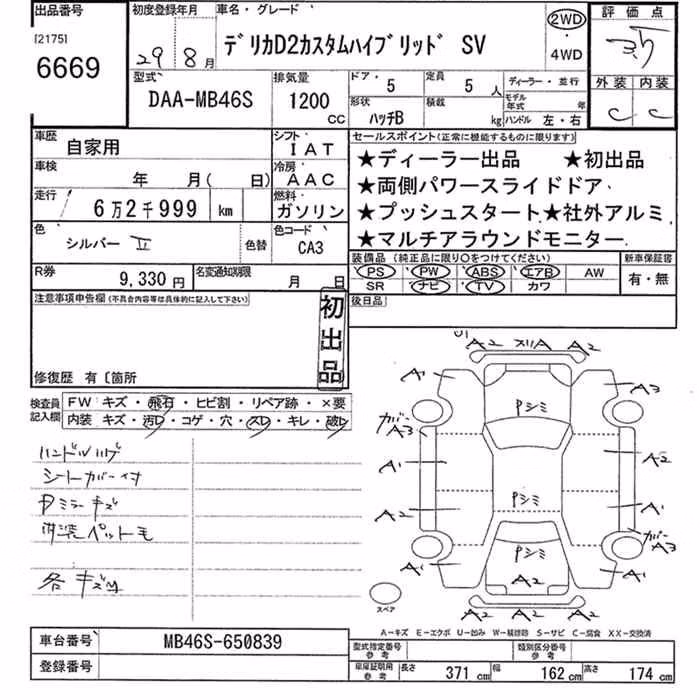 出品番号 初度登録年月 車名・グレード 評価点
[2175] 29年 8月 デリカD2カスタムハイブリッド SV 2WD 3.5
6669 4WD
型式 排気量 ドア・ 5 定員 5 人 ディーラー・並行 外装 内装
DAA-MB46S 1200 CC 形状 ハッチB 積載 kg モデル年式 年 ハンドル 左・右 C C
車歴 自家用 シフト IAT セールスポイント(正常に機能するものに限ります)
車検 年 月( 日) 冷房 AAC ★ディーラー出品 ★初出品
走行 6万2千999 km 燃料 ガソリン ★両側パワースライドドア
★プッシュスタート★社外アルミ
色 シルバーⅡ 色替 色コード CA3 ★マルチアラウンドモニター
装備品(純正品に限り○をつけてください) 新車保証書
R券 9,330円 名変通知期限 月 日 PS PW ABS エアB AW 有・無
SR ナビ TV カワ
注意事項申告欄(不具合内容等は具体的に記入して下さい) 後日品
初出品
修復歴 有〔箇所
検査員記入欄 FW キズ・飛石・ヒビ割・リペア跡・×要
内装 キズ・汚レ・コゲ・穴・スレ・キレ・破レ
ハンドルハゲ
シートカバー付
Pミラーキズ
内装ペットモ
各キズ凹
A2 スリA A2
A1 A3
Pシミ
ガバーA3
A1 A2
A2 Pシミ A1
ガバーA3
A1 Pシミ A1
A2
A2 A2
スペア
A-キズ E-エクボ U-凹み W-補修跡 S-サビ C-腐食 XX-交換済
車台番号 MB46S-650839 型式指定番号参考 類別区分番号参考
登録番号 車庫証明用参考 長さ 371 cm 幅 162 cm 高さ 174 cm